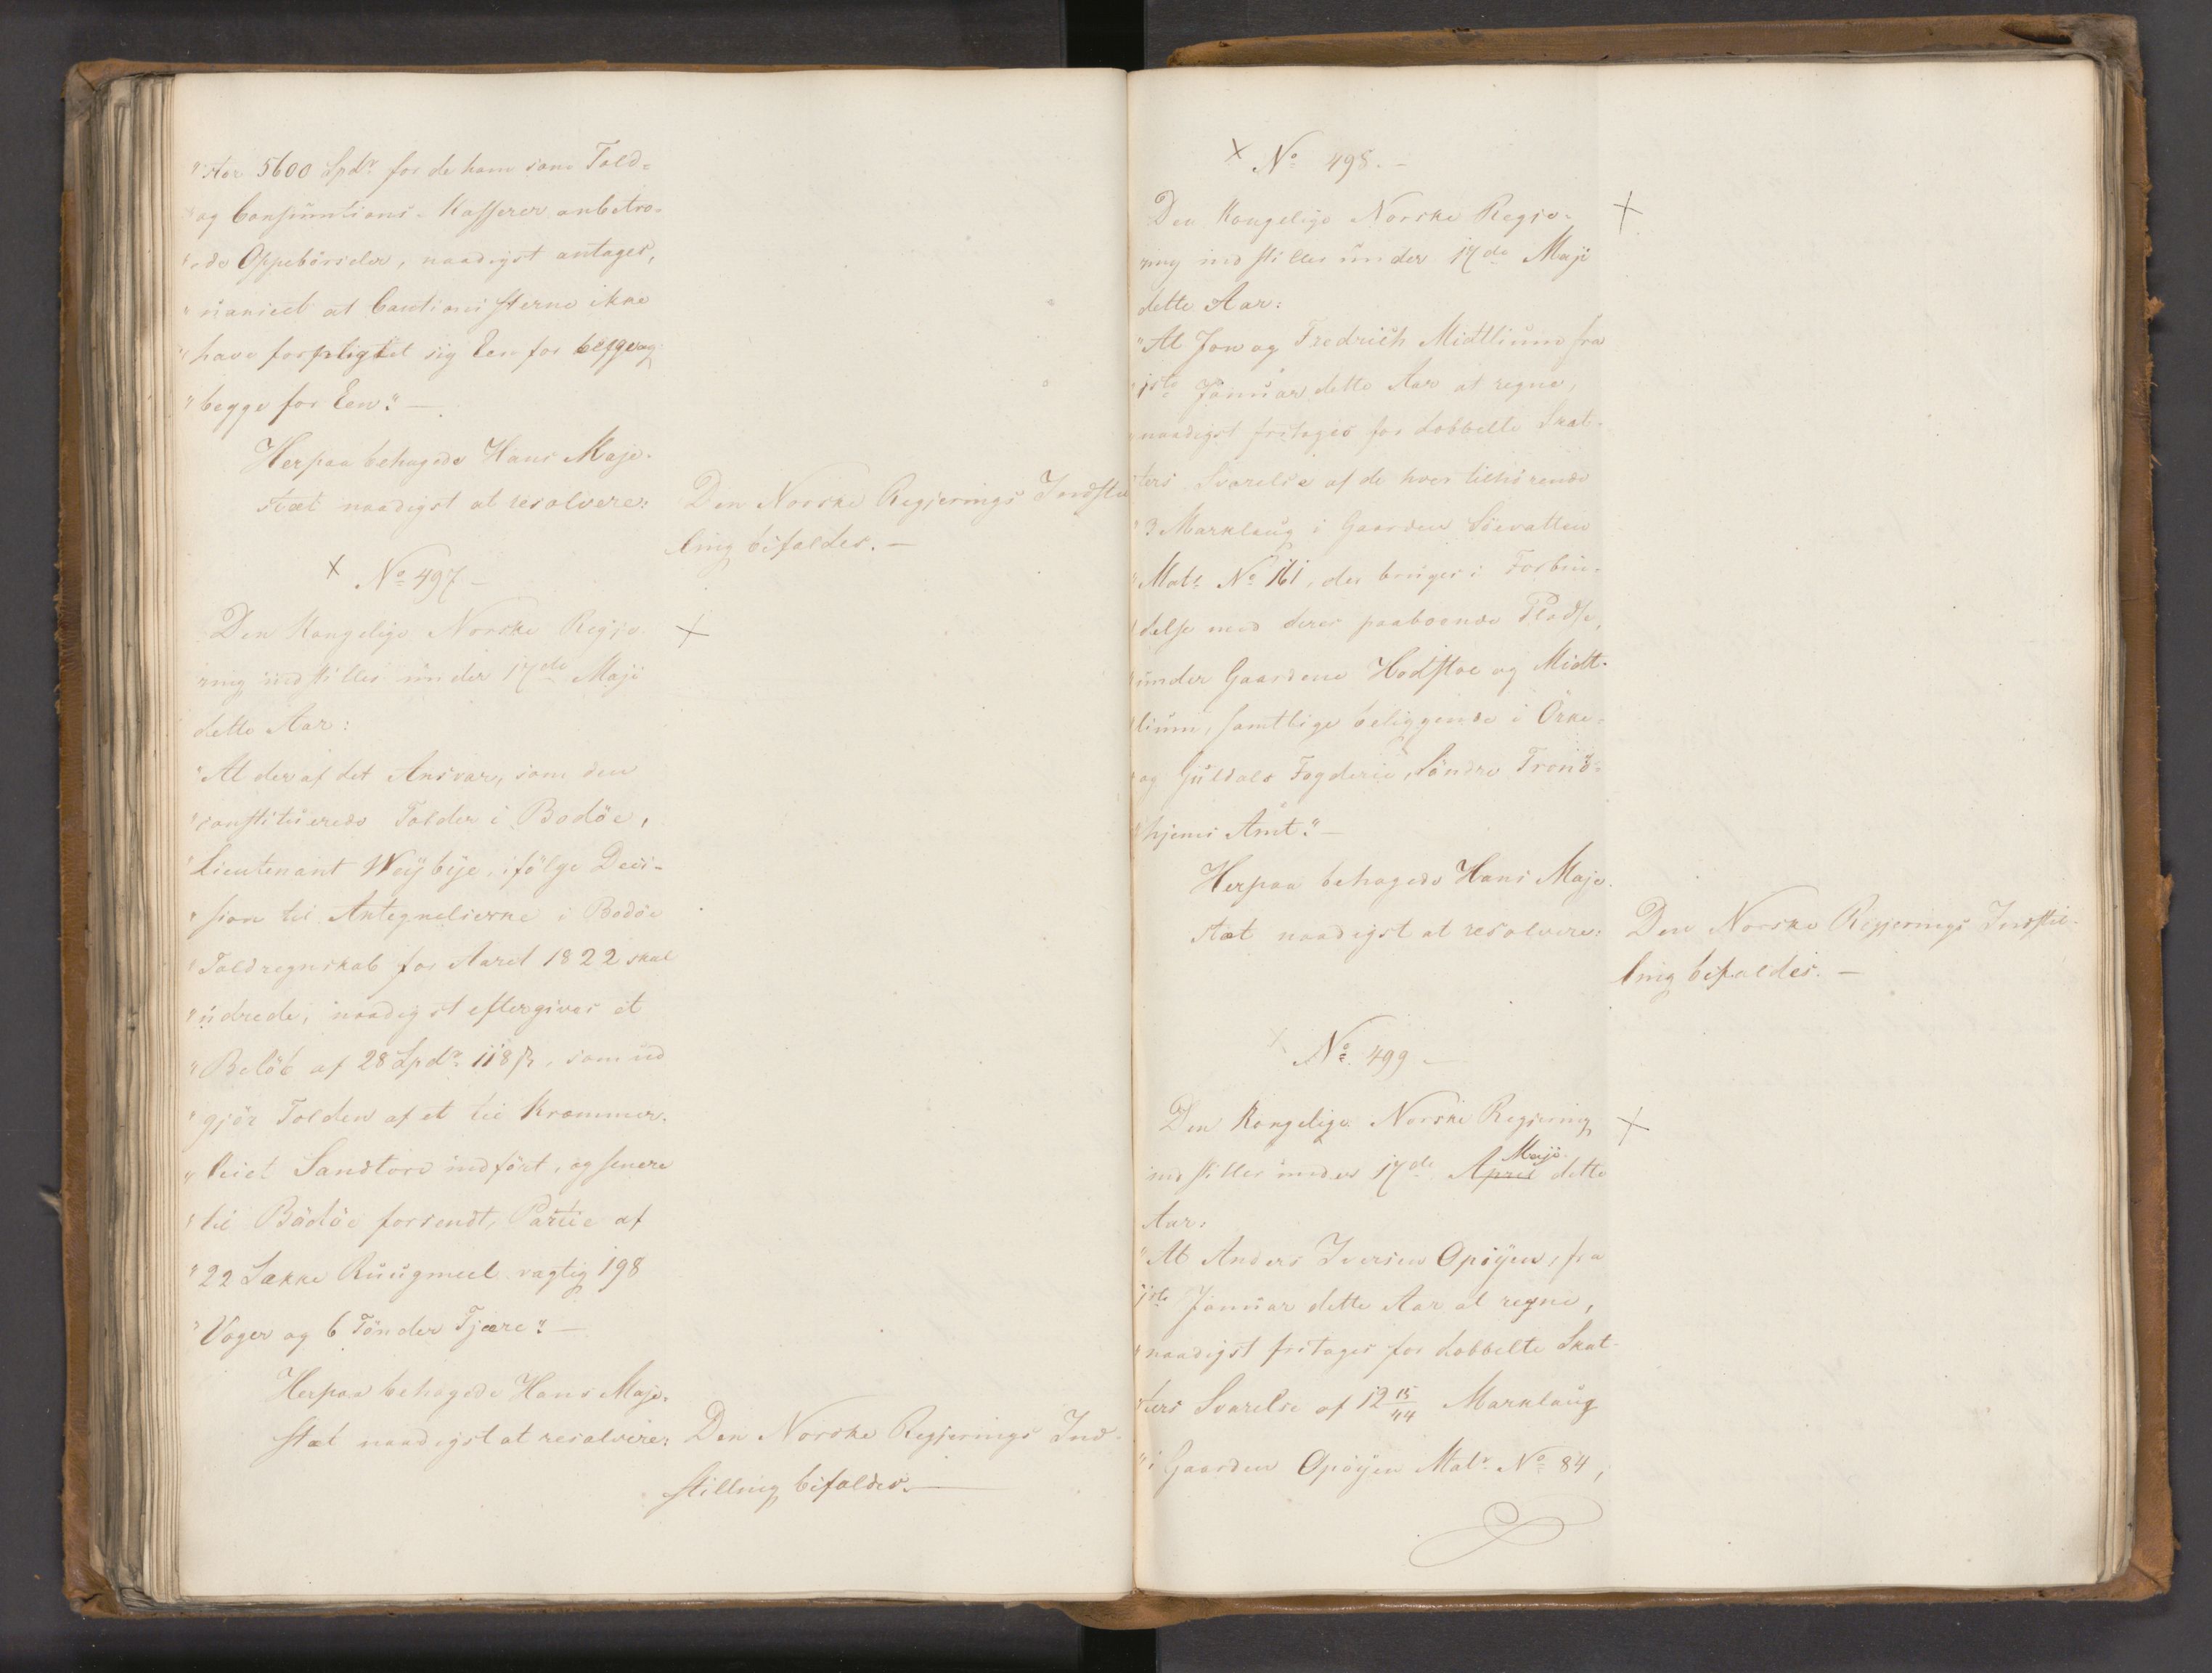 "stor 5600 Spdr for de ham som Told-
"og Consumtions-Kasserer anbetro-
"ede Oppebörseler, naadigst antages,
"uanseet at Cautionisterne ikke
"have forpligtet sig Een for begge og
"begge for Een". —
Herpaa behagede Hans Maje-
stæt naadigst at resolvere:
Den Norske Regjerings Indstil
ling bifaldes. —
× No 497 —
Den Kongelige Norske Regje- ×
ring indstiller under 17de Maji
dette Aar:
"At der af det Ansvar, som den
"constituerede Tolder i Bodöe,
"Lieutenant Weybye, ifölge Deci-
"sion til Antegnelserne i Bodöe
"Toldregnskab for Aaret 1822 skal
"udrede, naadigst eftergives et
"Belöb af 28 Spdr 118 β, som ud
"gjör Tolden af et til Kræmmer-
"leiet Sandtorv indfört, og senere
"til Bodöe forsendt, Partie af
"22 Sække Ruugmeel vægtig 198
"Voger og 6 Tönder Tjære". —
Herpaa behagede Hans Maje-
stæt naadigst at resolvere:
Den Norske Regjerings Ind-
stilling bifaldes. —
× No 498. —
Den Kongelige Norske Regje- ×
ring indstiller under 17de Maji
dette Aar:
"At Jon og Fredrich Midtlium fra
"1ste Januar dette Aar at regne,
"naadigst fritages for dobbelte Skat-
"ters Svarelse af de hver tilhörende
"3 Marklaug i Gaarden Söevatten
"Matr No 161, der bruges i Forbin-
"delse med deres paaboende Pladse,
"under Gaardene Hodstoe og Midt-
"lium, samtlige beliggende i Örke-
"og Guldals Fogderie, Söndre Trond-
"hjems Amt". —
Herpaa behagede Hans Maje-
stæt naadigst at resolvere:
Den Norske Regjerings Indstil-
ling bifaldes. —
× No 499 —
Den Kongelige Norske Regjering ×
indstiller under 17de April Maji dette
Aar:
"At Anders Iversen Opöyen, fra
"1ste Januar dette Aar at regne,
"naadigst fritages for dobbelte Skat-
"ters Svarelse af 12 15/44 Marklaug
"i Gaarden Opöyen Matr No 84,